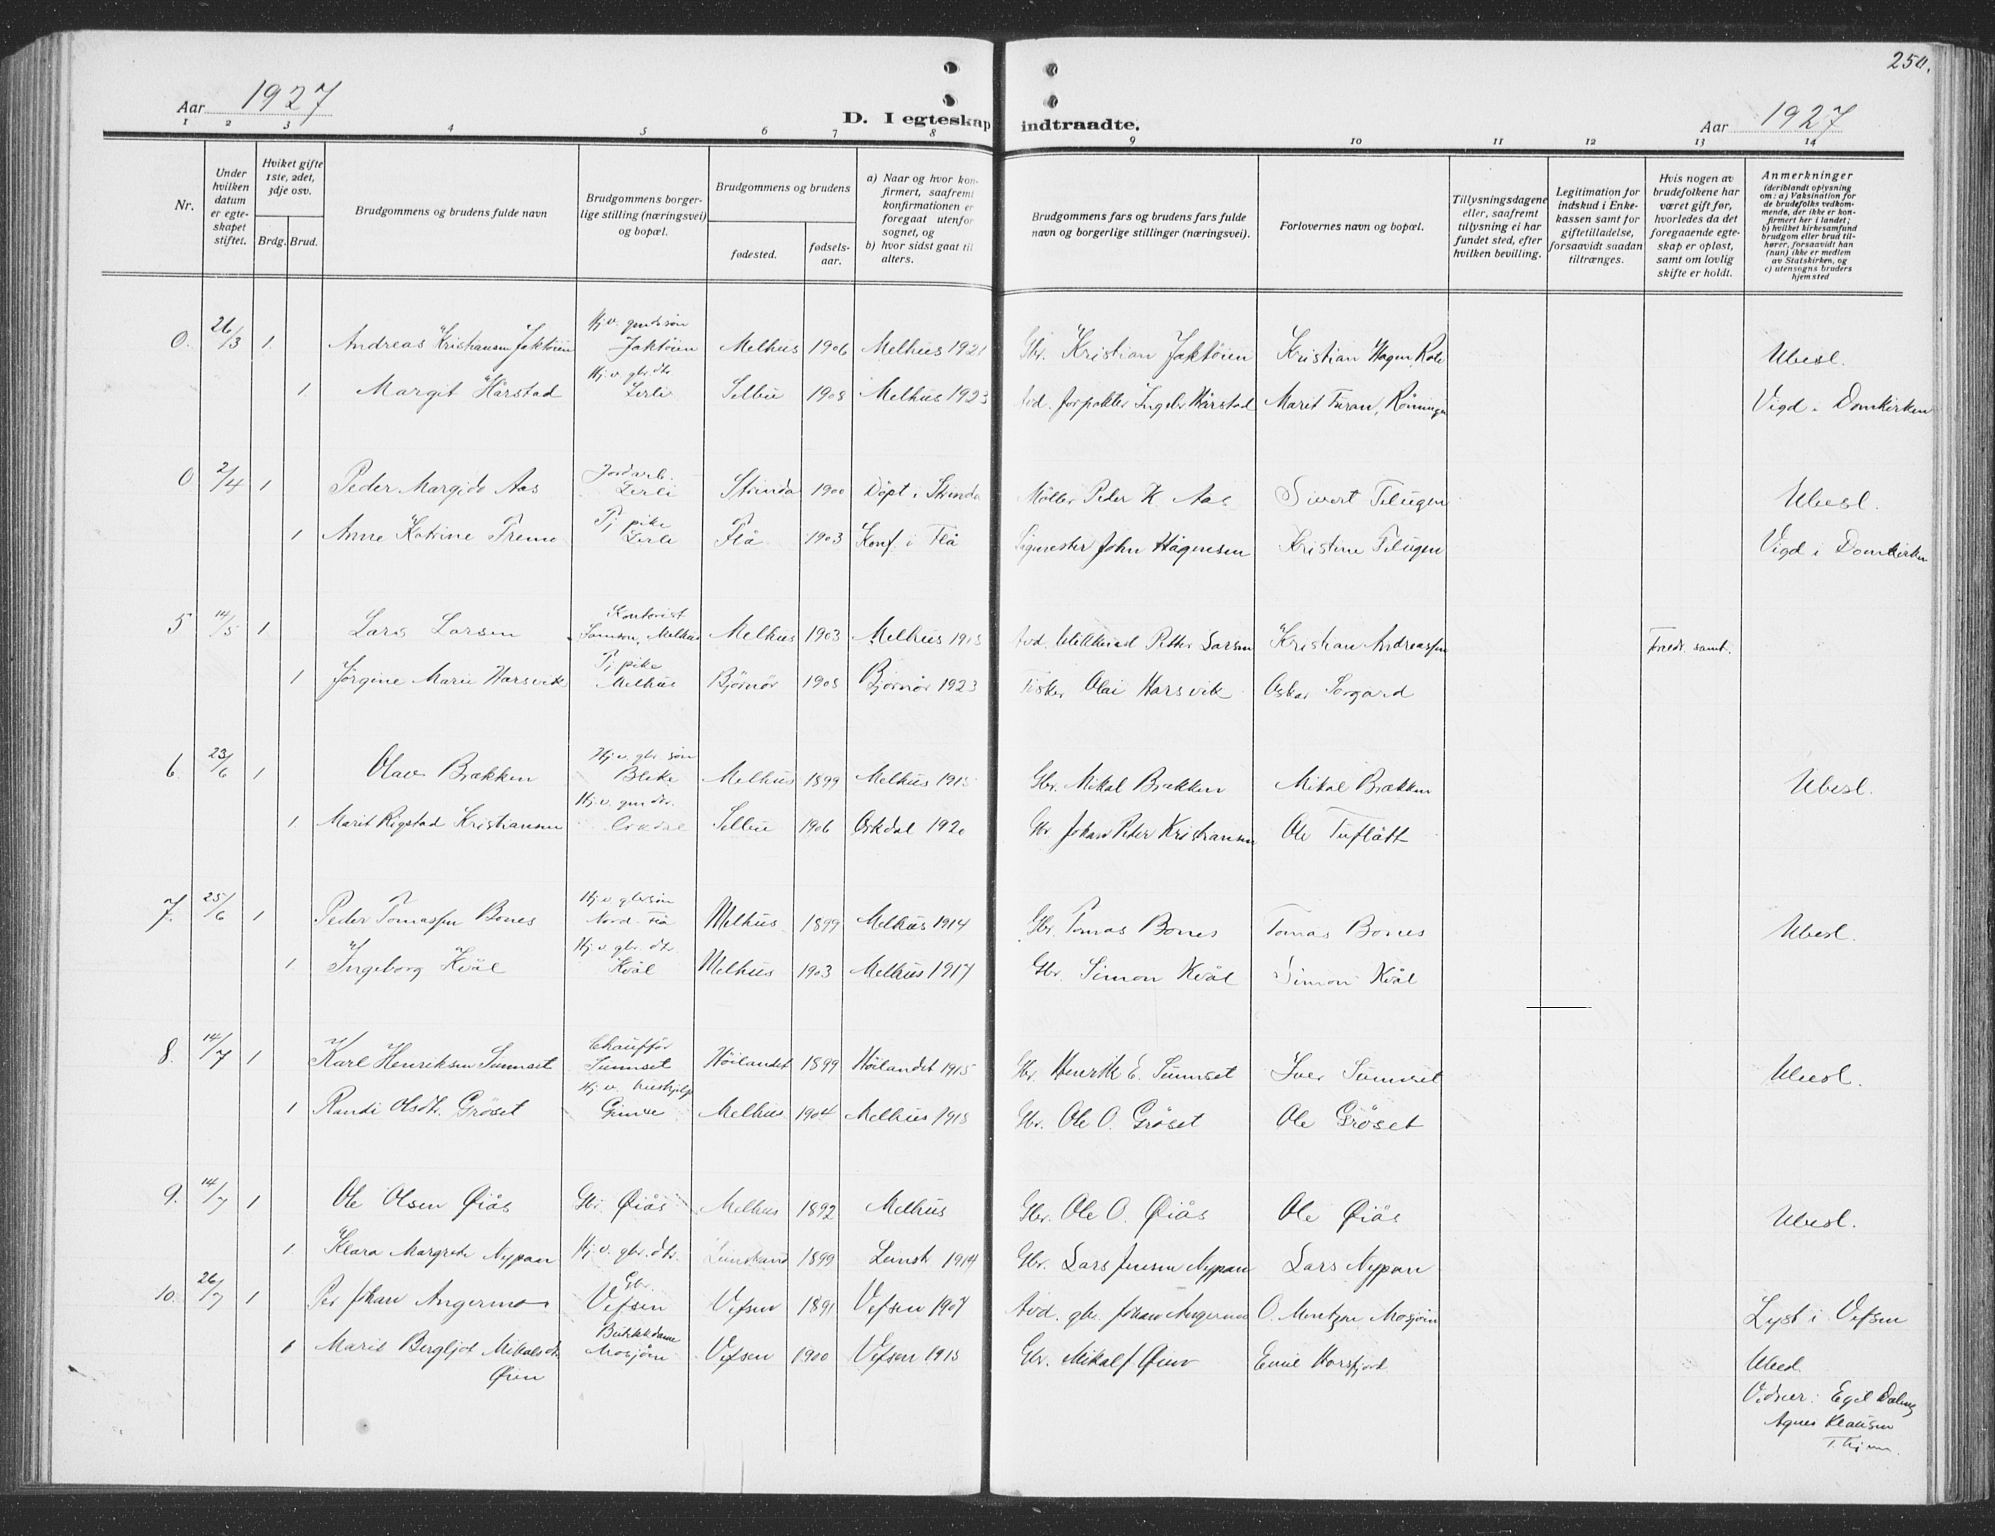 250.
Aar 1927
D. I egteskap indtraadte.
Aar 1927
1 2 3 4 5 6 7 8 9 10 11 12 13 14
Nr.
Under hvilken datum er egteskapet stiftet.
Hvilket gifte 1ste, 2det, 3dje osv.
Brdg. Brud.
Brudgommens og brudens fulde navn
Brudgommens borgerlige stilling (næringsvei) og bopæl.
Brudgommens og brudens
fødested.
fødselsaar.
a) Naar og hvor konfirmert, saafremt konfirmationen er foregaat utenfor sognet, og
b) hvor sidst gaat til alters.
Brudgommens fars og brudens fars fulde navn og borgerlige stillinger (næringsvei).
Forlovernes navn og bopæl.
Tillysningsdagene eller, saafremt tillysning ei har fundet sted, efter hvilken bevilling.
Legitimation for indskud i Enkekassen samt for giftetilladelse, forsaavidt saadan tiltrænges.
Hvis nogen av brudefolkene har været gift før, hvorledes da det foregaaende egteskap er opløst, samt om lovlig skifte er holdt.
Anmerkninger
(deriblandt oplysning om: a) Vaksination for de brudefolks vedkommende, der ikke er konfirmert her i landet; b) hvilket kirkesamfund brudgom eller brud tilhører, forsaavidt han (hun) ikke er medlem av Statskirken, og c) utensogns bruders hjemsted
0. 26/3 1. Andreas Kristiansen Jaktöien Hj.v. gmds søn Jaktöien Melhus 1906 Melhus 1921 Gbr. Kristian Jaktöien Kristian Hagen, Ubesl.
1. Margit Hårstad Hj.v. gbr.dtr. Lerli Selbu 1908 Melhus 1923 Avd. Hårstad Marit Turan, Vigd i Domkirken
0 2/4 1 Peder Margido Aas Jordarb. Lerli Strinda 1900 Döpt i Strinda Möller Peder K. Aas Sivert Ubesl.
1 Anne Katrine Tj.pike Lerli Flå 1903 Konf i Flå John Hågensen Kristine Vigd i Domkirken
5 14/5 1. Lars Larsen Kontorist Melhus Melhus 1903 Melhus 1918 Avd. Petter Larsen Kristian Andreassen samt.
1 Jørgine Marie Harsvik Tj.pike Melhus Bjørnør 1908 Bjørnör 1923 Fisker Olai Harsvik Oskar Sorgard
6. 23/6 1 Olav Brækken Hj.v. gbr søn Bleke Melhus 1899 Melhus 1915 Gbr. Mikal Brækken Mikal Brækken Ubesl.
1. Marit Rigstad Kristiansen Hj.v. gm dtr. Selbu 1906 1920 Gbr Johan Peter Kristiansen Ole Tuflått
7. 25/6 1 Peder Tomassen Bones Hj.v. gbr søn Nord-Flå Melhus 1899 Melhus 1914 Gbr Tomas Bones Tomas Bones Ubesl.
1. Ingeborg Kvål Hj.v. gbr. dtr. Kvål Melhus 1903 Melhus 1917 Gbr. Simon Kvål Simon Kvål
8. 14/7 1 Karl Henriksen Sumset Chauffør Sumset Höilandet 1899 Höilandet 1915 Gbr. Henrik E. Sumset Iver Sumset Ubesl.
1 Randi Olsdtr. Gröset Hj.v. hushjelp Gimse Melhus 1904 Melhus 1918 Gbr. Ole O. Gröset Ole Gröset
9. 14/7 1 Ole Olsen Øiås Gbr. Øiås Melhus 1892 Melhus Gbr. Ole O. Øiås Ole Øiås Ubesl.
1. Klara Margrete Nypan Hj.v. gbr.dtr. Leinstrand 1899 Leinstr 1914 Gbr. Lars Jensen Nypan Lars Nypan
10. 26/7 1 Per Johan Angermo Gbr. Vefsen Vefsen 1891 Vefsen 1907 Avd. gbr. Johan Angermo O. Mentzen Mosjöen Lyst i Vefsen
1 Marie Bergljot Mikalsdtr Øien Butikkdame Mosjöen Vefsen 1900 Vefsen 1915 Gbr. Mikal J Øien Emil Horsfjord Ubesl.
Vidner: Egil
Agnes Klausen